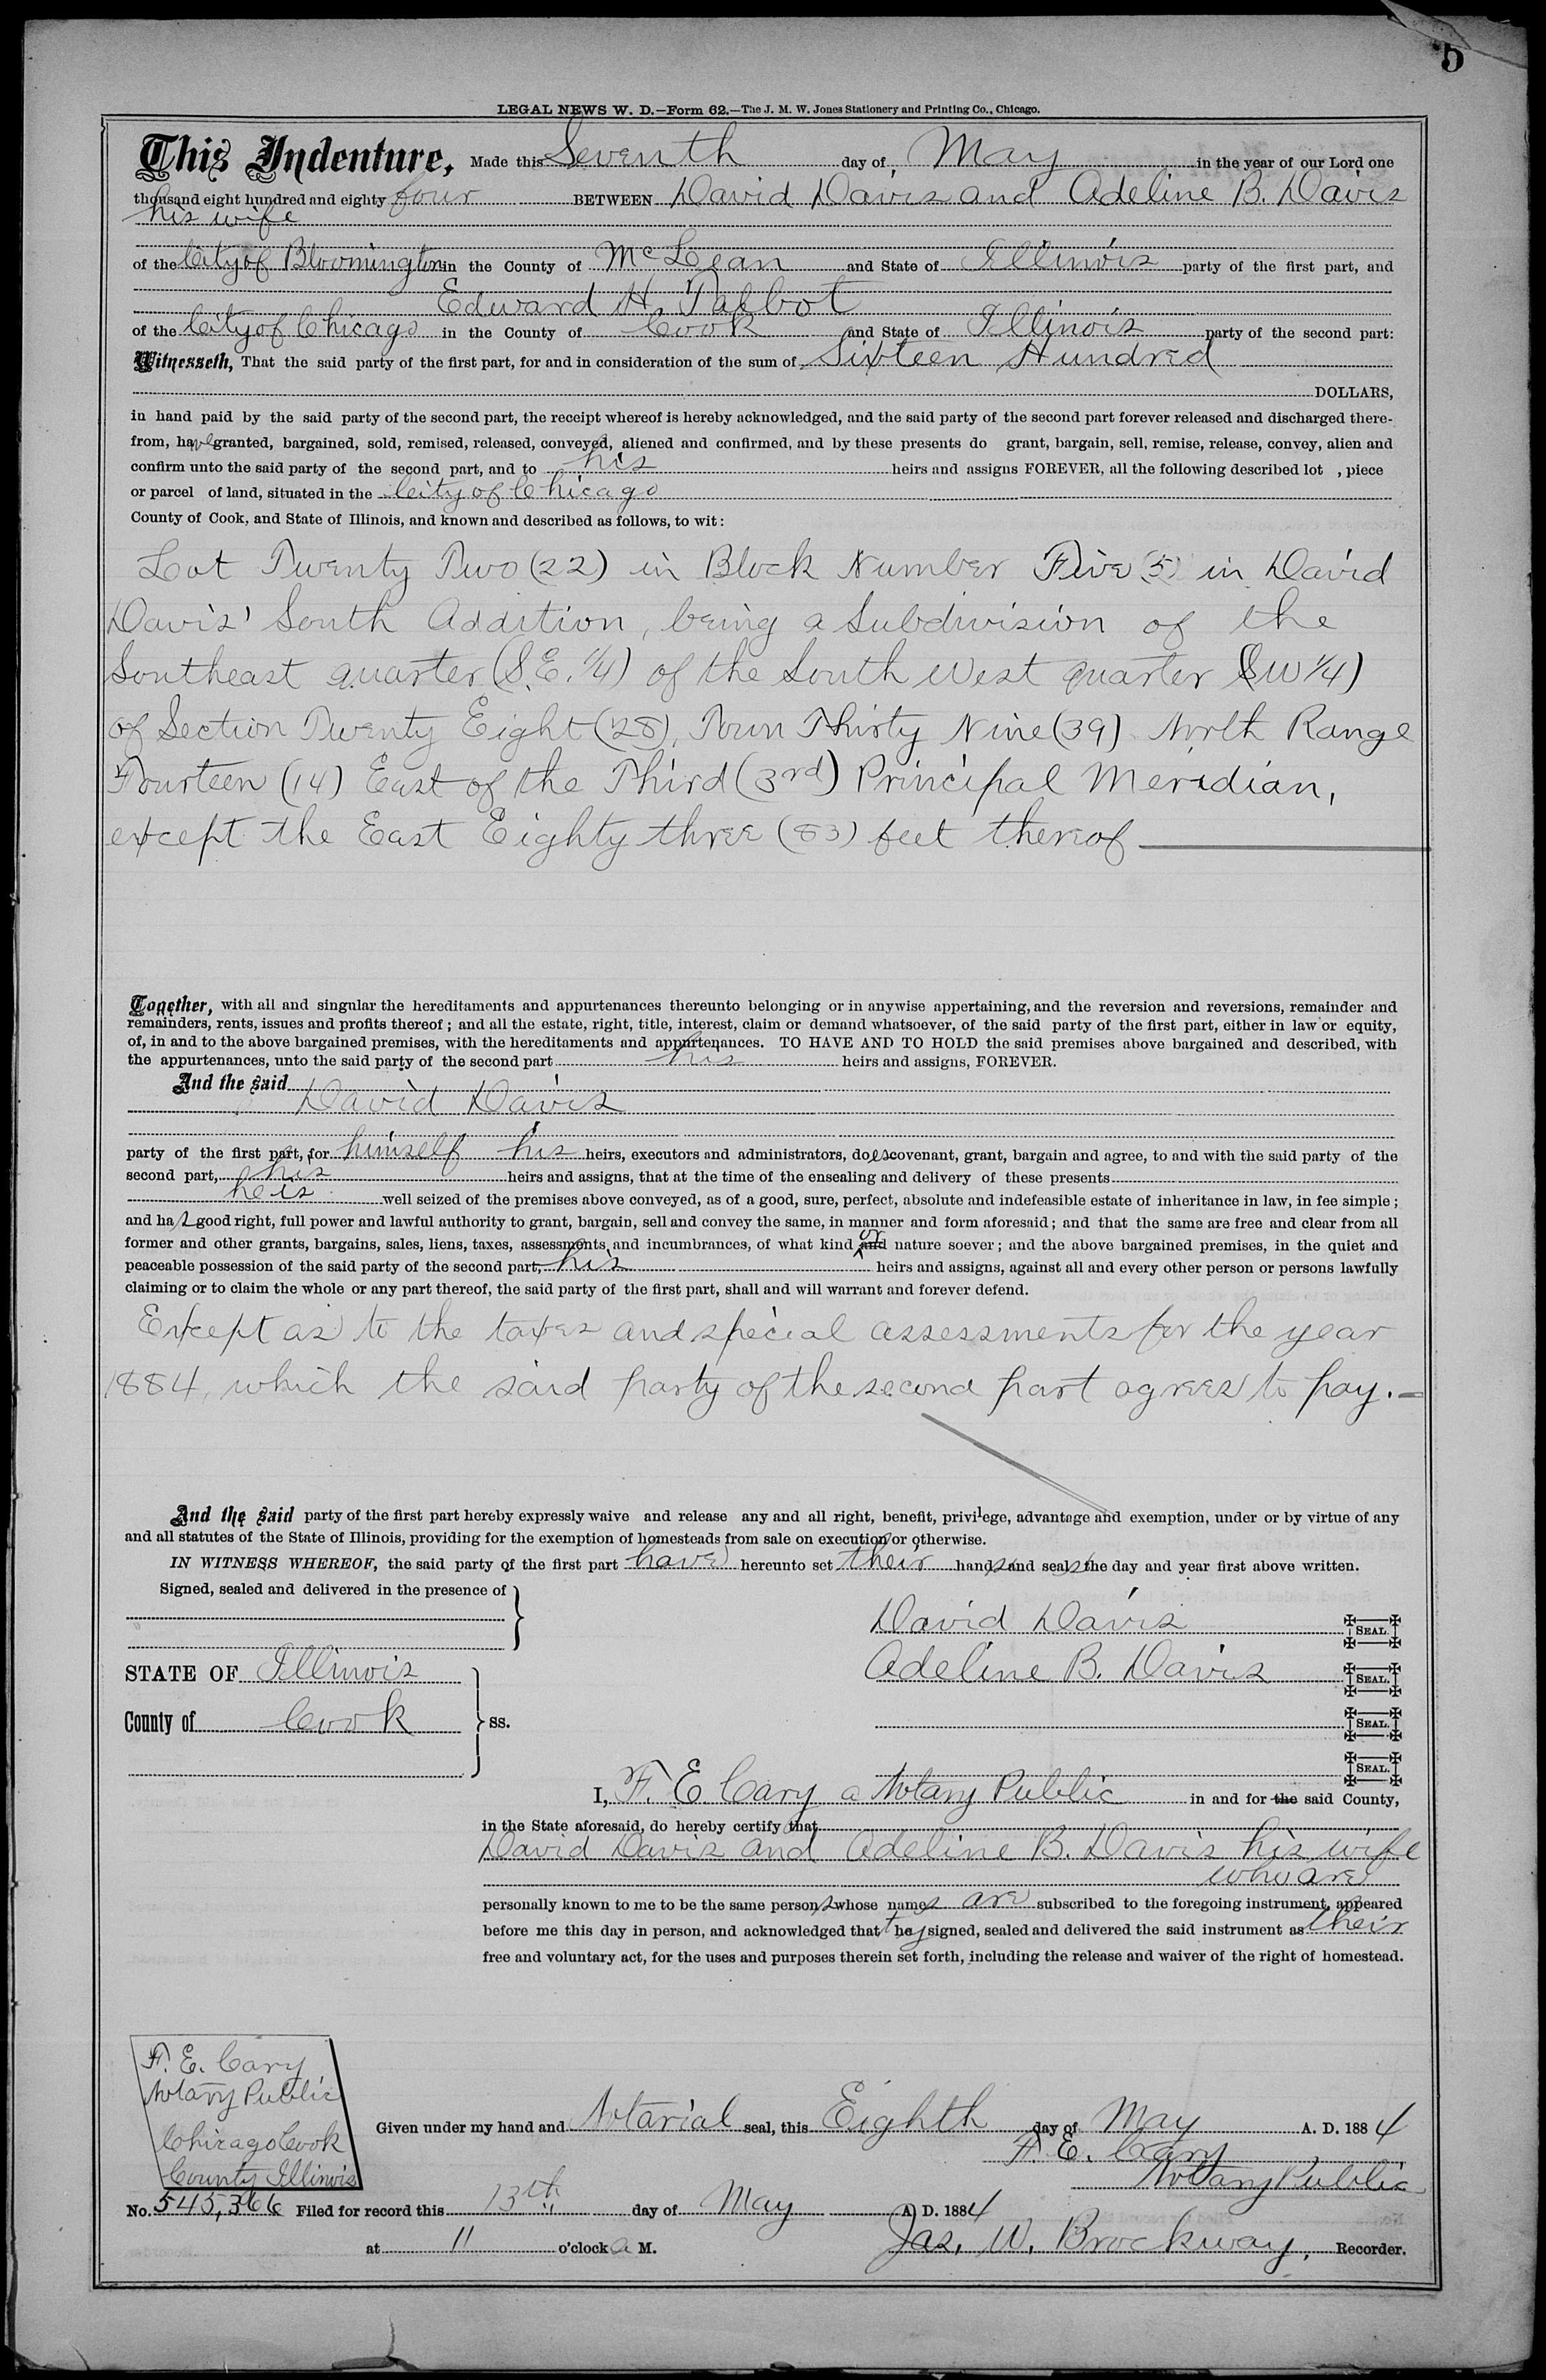 5
LEGAL NEWS W. D.—Form 62.—The J. M. W. Jones Stationery and Printing Co., Chicago.
This Indenture, Made this Seventh day of, May in the year of our Lord one
thousand eight hundred and eighty four BETWEEN David Davis and Adeline B. Davis
his wife
of the City of Bloomington in the County of McLean and State of Illinois party of the first part, and
Edward H. Talbot
of the City of Chicago in the County of Cook and State of Illinois party of the second part:
Witnesseth, That the said party of the first part, for and in consideration of the sum of Sixteen Hundred
DOLLARS,
in hand paid by the said party of the second part, the receipt whereof is hereby acknowledged, and the said party of the second part forever released and discharged there-
from, have granted, bargained, sold, remised, released, conveyed, aliened and confirmed, and by these presents do grant, bargain, sell, remise, release, convey, alien and
confirm unto the said party of the second part, and to his heirs and assigns FOREVER, all the following described lot , piece
or parcel of land, situated in the City of Chicago
County of Cook, and State of Illinois, and known and described as follows, to wit:
Lot Twenty Two (22) in Block Number Five (5) in David
Davis' South Addition, being a Subdivision of the
Southeast quarter (S.E. 1/4) of the South West quarter (SW 1/4)
of Section Twenty Eight (28), Town Thirty Nine (39) North Range
Fourteen (14) East of the Third (3rd) Principal Meridian,
except the East Eighty three (83) feet thereof
Together, with all and singular the hereditaments and appurtenances thereunto belonging or in anywise appertaining, and the reversion and reversions, remainder and
remainders, rents, issues and profits thereof; and all the estate, right, title, interest, claim or demand whatsoever, of the said party of the first part, either in law or equity,
of, in and to the above bargained premises, with the hereditaments and appurtenances. TO HAVE AND TO HOLD the said premises above bargained and described, with
the appurtenances, unto the said party of the second part his heirs and assigns, FOREVER.
And the said
David Davis
party of the first part, for himself his heirs, executors and administrators, does covenant, grant, bargain and agree, to and with the said party of the
second part, his heirs and assigns, that at the time of the ensealing and delivery of these presents
he is well seized of the premises above conveyed, as of a good, sure, perfect, absolute and indefeasible estate of inheritance in law, in fee simple;
and has good right, full power and lawful authority to grant, bargain, sell and convey the same, in manner and form aforesaid; and that the same are free and clear from all
former and other grants, bargains, sales, liens, taxes, assessments and incumbrances, of what kind and or nature soever; and the above bargained premises, in the quiet and
peaceable possession of the said party of the second part, his heirs and assigns, against all and every other person or persons lawfully
claiming or to claim the whole or any part thereof, the said party of the first part, shall and will warrant and forever defend.
Except as to the taxes and special assessments for the year
1884, which the said party of the second part agrees to pay.
And the said party of the first part hereby expressly waive and release any and all right, benefit, privilege, advantage and exemption, under or by virtue of any
and all statutes of the State of Illinois, providing for the exemption of homesteads from sale on execution or otherwise.
IN WITNESS WHEREOF, the said party of the first part have hereunto set their hands and seals the day and year first above written.
Signed, sealed and delivered in the presence of
David Davis SEAL.
Adeline B. Davis SEAL.
SEAL.
SEAL.
STATE OF Illinois
County of Cook ss.
I, F. E. Cary a Notary Public in and for the said County,
in the State aforesaid, do hereby certify that
David Davis and Adeline B. Davis his wife
who are
personally known to me to be the same persons whose names are subscribed to the foregoing instrument, appeared
before me this day in person, and acknowledged that they signed, sealed and delivered the said instrument as their
free and voluntary act, for the uses and purposes therein set forth, including the release and waiver of the right of homestead.
F. E. Cary
Notary Public
Chicago Cook
County Illinois
Given under my hand and Notarial seal, this Eighth day of May A. D. 1884
F. E. Cary
Notary Public
No. 545,366 Filed for record this 13th day of May A. D. 1884
at 11 o'clock a M. Jas. W. Brockway, Recorder.